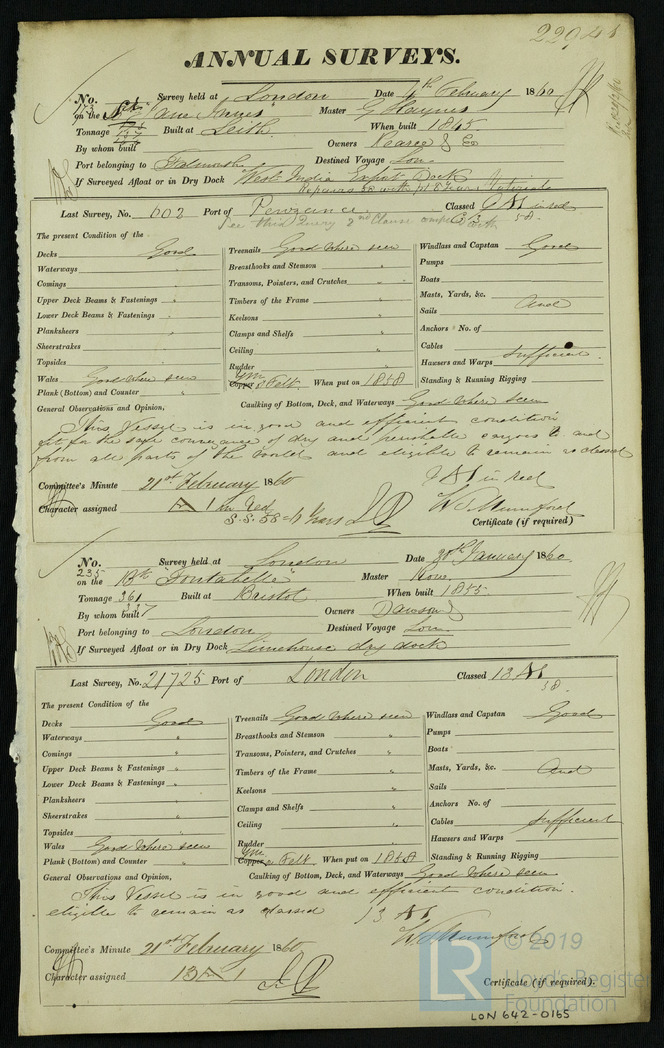 ANNUAL SURVEYS.
No. 173 Survey held at London Date 4th February 1860
on the Jane Innes Master G Haynes
Tonnage Built at Leith When built 1845
By whom built Owners Pearce & Co
Port belonging to Falmouth Destined Voyage Lon
If Surveyed Afloat or in Dry Dock West India Export Dock
Last Survey, No. 602 Port of Penzance Classed A1 in red
58
The present Condition of the
Decks Good
Waterways "
Comings "
Upper Deck Beams & Fastenings "
Lower Deck Beams & Fastenings "
Planksheers "
Sheerstrakes
Topsides
Wales Good where seen
Plank (Bottom) and Counter "
Treenails Good where seen
Breasthooks and Stemson "
Transoms, Pointers, and Crutches "
Timbers of the Frame "
Keelsons "
Clamps and Shelfs "
Ceiling "
Rudder "
YM
Copper & Felt When put on 1858
Windlass and Capstan Good
Pumps
Boats
Masts, Yards, &c.
Sails And
Anchors No. of
Cables
Hawsers and Warps Sufficient
Standing & Running Rigging
General Observations and Opinion, Caulking of Bottom, Deck, and Waterways Good where seen
This Vessel is in good and efficient condition
fit for the safe conveyance of dry and perishable cargoes to and
from all parts of the world and eligible to remain as classed
A1 in red
Committee's Minute 21st February 1860
W. S. Mumford
Character assigned A 1 in red
S.S. 58-4 Years
Certificate (if required)
No. 235 Survey held at London Date 30th January 1860
on the Bk "Fontabelle" Master
Tonnage 361 Built at Bristol When built 1855
337
By whom built Owners Dawson
Port belonging to London Destined Voyage Lon
If Surveyed Afloat or in Dry Dock Limehouse dry dock
Last Survey, No. 21725 Port of London Classed 13 A1
58
The present Condition of the
Decks Good
Waterways "
Comings "
Upper Deck Beams & Fastenings "
Lower Deck Beams & Fastenings "
Planksheers "
Sheerstrakes "
Topsides "
Wales Good where seen
Plank (Bottom) and Counter "
Treenails Good where seen
Breasthooks and Stemson "
Transoms, Pointers, and Crutches "
Timbers of the Frame "
Keelsons "
Clamps and Shelfs "
Ceiling "
Rudder
YM
Copper & Felt When put on 1858
Windlass and Capstan Good
Pumps
Boats
Masts, Yards, &c. And
Sails
Anchors No. of
Cables Sufficient
Hawsers and Warps
Standing & Running Rigging
General Observations and Opinion, Caulking of Bottom, Deck, and Waterways Good where seen
This Vessel is in good and efficient condition
eligible to remain as classed 13 A1
W. S. Mumford
Committee's Minute 21st February 1860
Character assigned 13 A 1
Certificate (if required).
© 2019
LR Lloyd's Register
Foundation
LON 642-0165